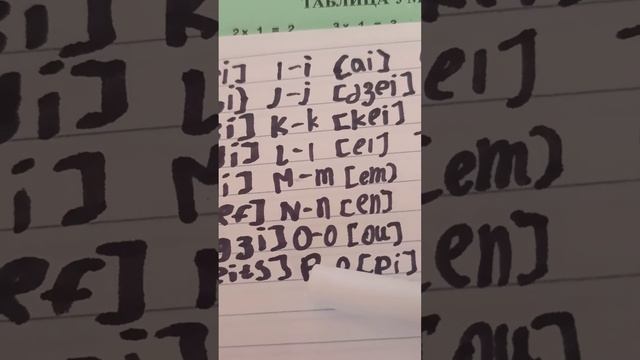 ТАБЛИЦА УМ
2 x 1 = 2 3 x 1 = 3
i] I-i [ai]
i] J-j [dʒei]
i] K-k [kei]
i] L-l [el]
i] M-m [em)
ef] N-n [en]
dʒi] O-o [ou]
eitʃ] P-p [pi]